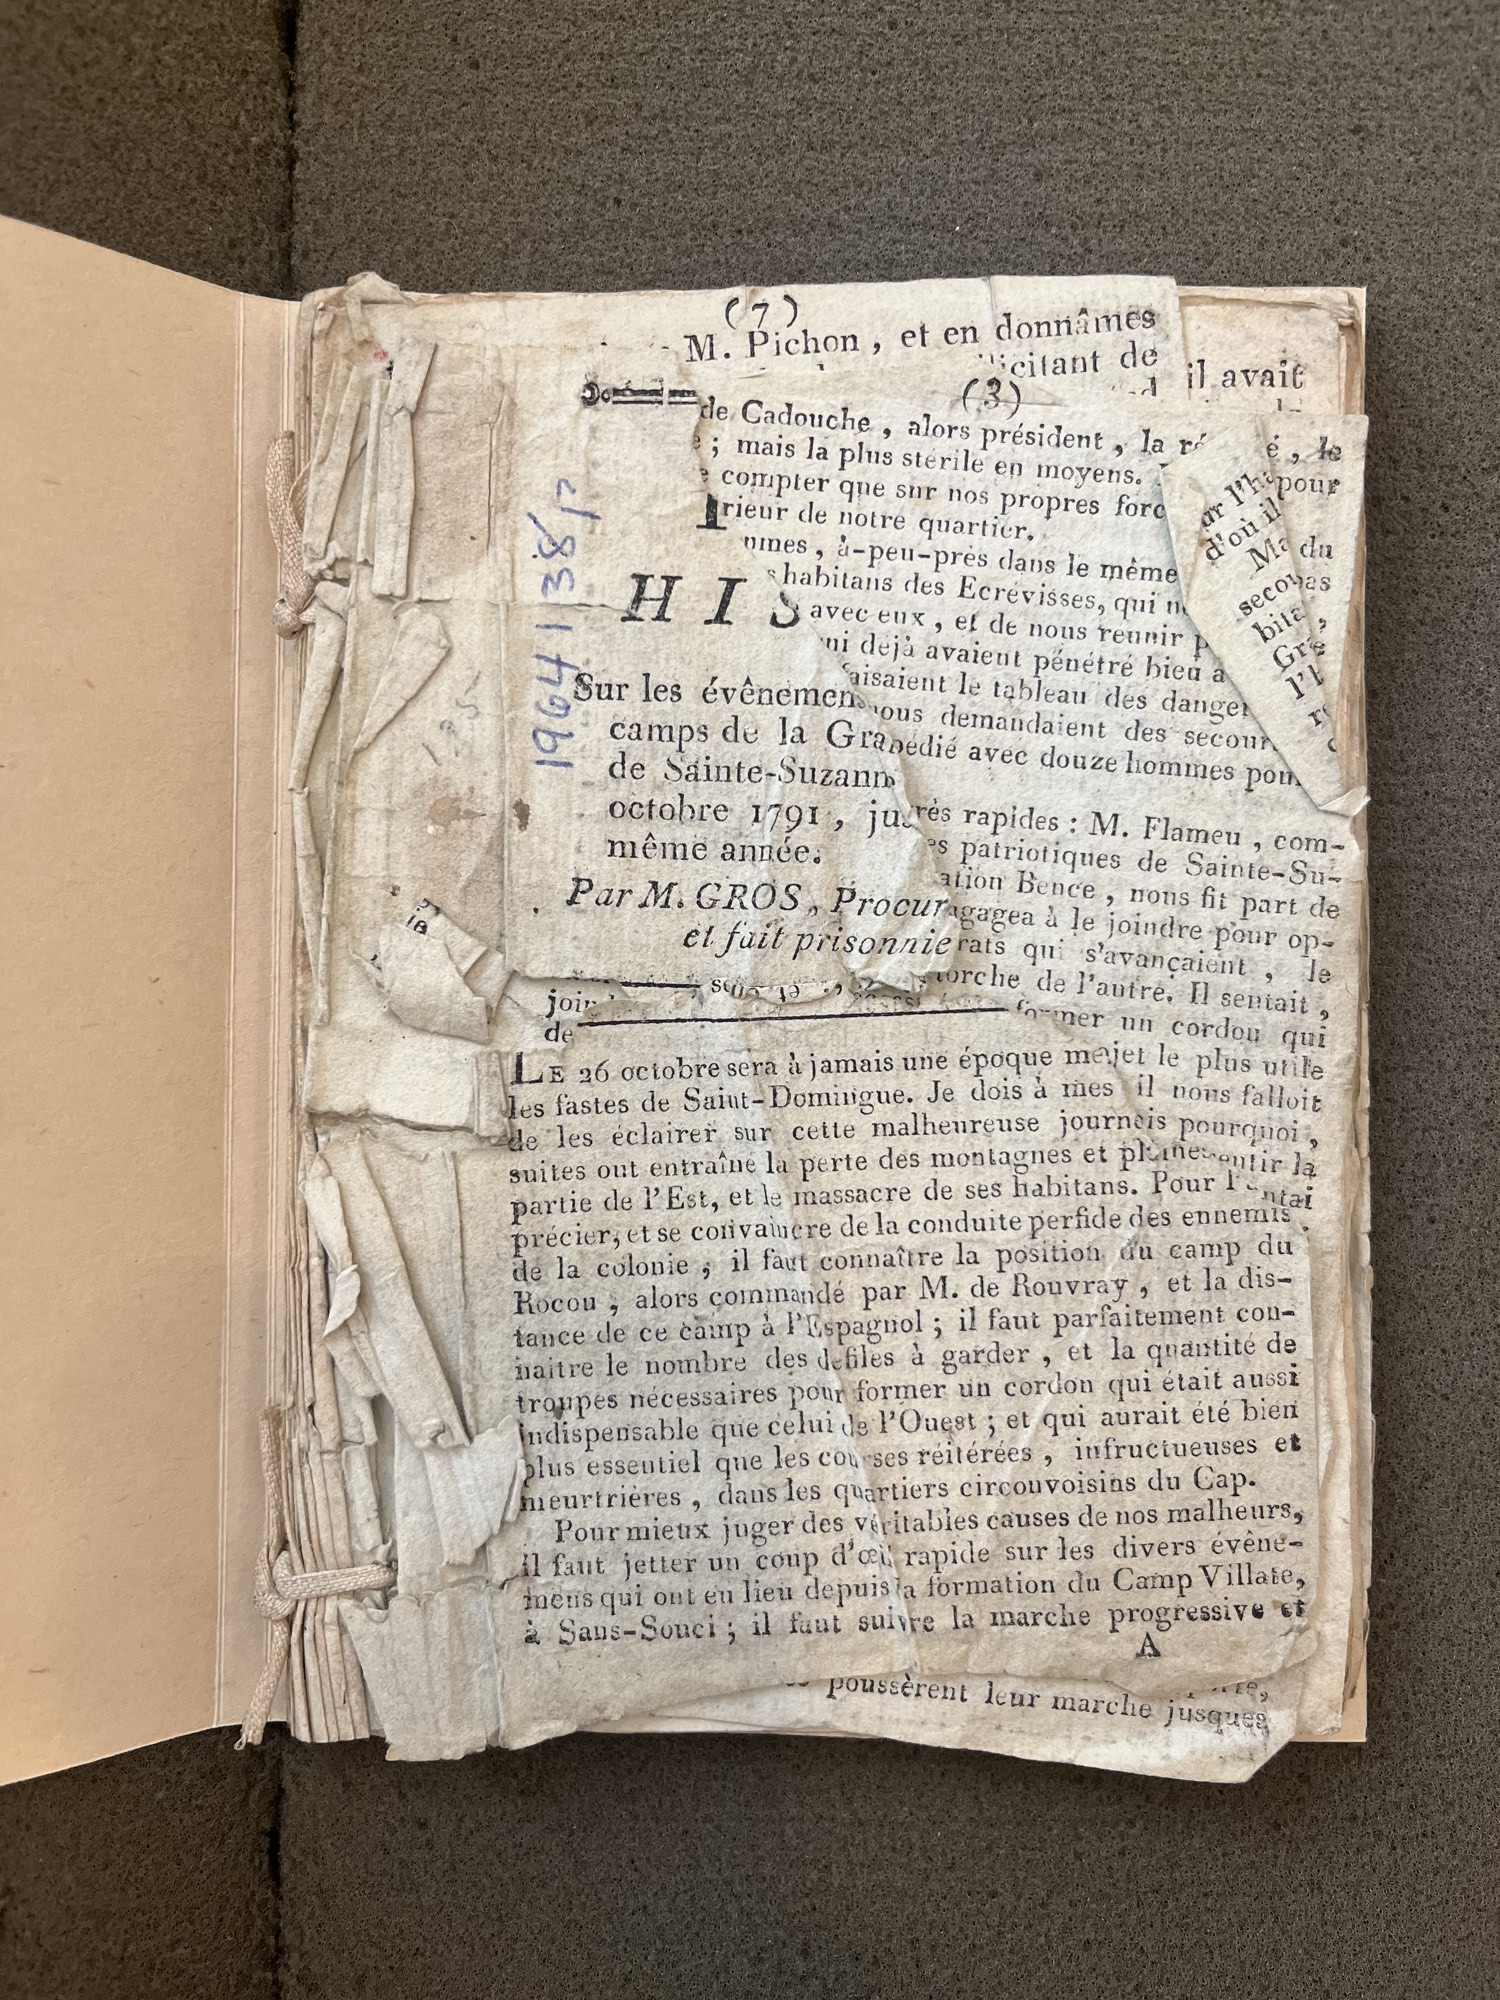 (7)
M. Pichon, et en donnâmes
icitant de
il avait
(3)
de Cadouche, alors président, la ré é, le
e; mais la plus stérile en moyens. pour
compter que snr nos propres forc
rieur de notre quartier.
mmes, à-peu-près dans le même du
habitans des Ecrevisses, qui n
avec eux, et de nous reunir p
ui déjà avaient pénétré bieu a
aisaient le tableau des danger
nous demandaient des secour
pédié avec douze hommes pour
rès rapides: M. Flameu, com-
es patriotiques de Sainte-Su-
ation Bence, nous fit part de
ngagea à le joindre pour op-
rats qui s'avançaient, le
torche de l'autre. Il sentait,
former un cordou qui
jet le plus utile
il nous falloit
is pourquoi,
sentir la
ntai
ur l'ha
d'où il
Ma
secou
bita
Gra
l'h
19641138p
135
HIS
Sur les évênemen
camps de la Gra
de Sainte-Suzann
octobre 1791, ju
même année.
Par M. GROS, Procur
et fait prisonnie
join
de
LE 26 octobre sera à jamais une époque me
les fastes de Saint-Domingue. Je dois à mes
de les éclairer sur cette malheureuse journ
suites ont entraîne la perte des montagnes et plaine
partie de l'Est, et le massacre de ses habitans. Pour l'
précier, et se convaincre de la conduite perfide des ennemis
de la colonie, il faut connaître la position du camp du
Rocou, alors commandé par M. de Rouvray, et la dis-
tance de ce camp à l'Espagnol; il faut parfaitement con-
naitre le nombre des défiles à garder, et la quantité de
troupes nécessaires pour former un cordon qui était aussi
indispensable que celui de l'Ouest; et qui aurait été bien
plus essentiel que les courses réitérées, infructueuses et
meurtrières, dans les quartiers circouvoisins du Cap.
Pour mieux juger des véritables causes de nos malheurs,
il faut jetter un coup d'œil rapide sur les divers évêne-
mens qui ont eu lieu depuis la formation du Camp Villate,
à Sans-Souci; il faut suivre la marche progressive et
A
poussèrent leur marche jusques